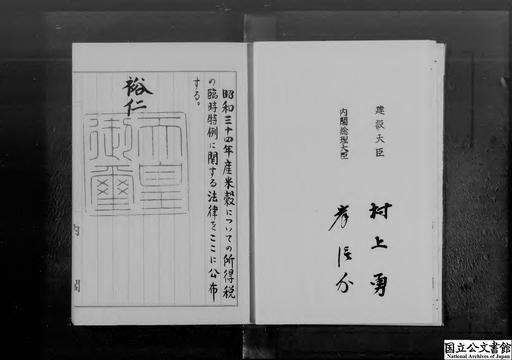 建設大臣
村上勇
内閣総理大臣
岸信介
昭和三十四年産米穀についての所得税
の臨時特例に関する法律をここに公布
する。
裕仁
天皇
御璽
内閣
国立公文書館
National Archives of Japan